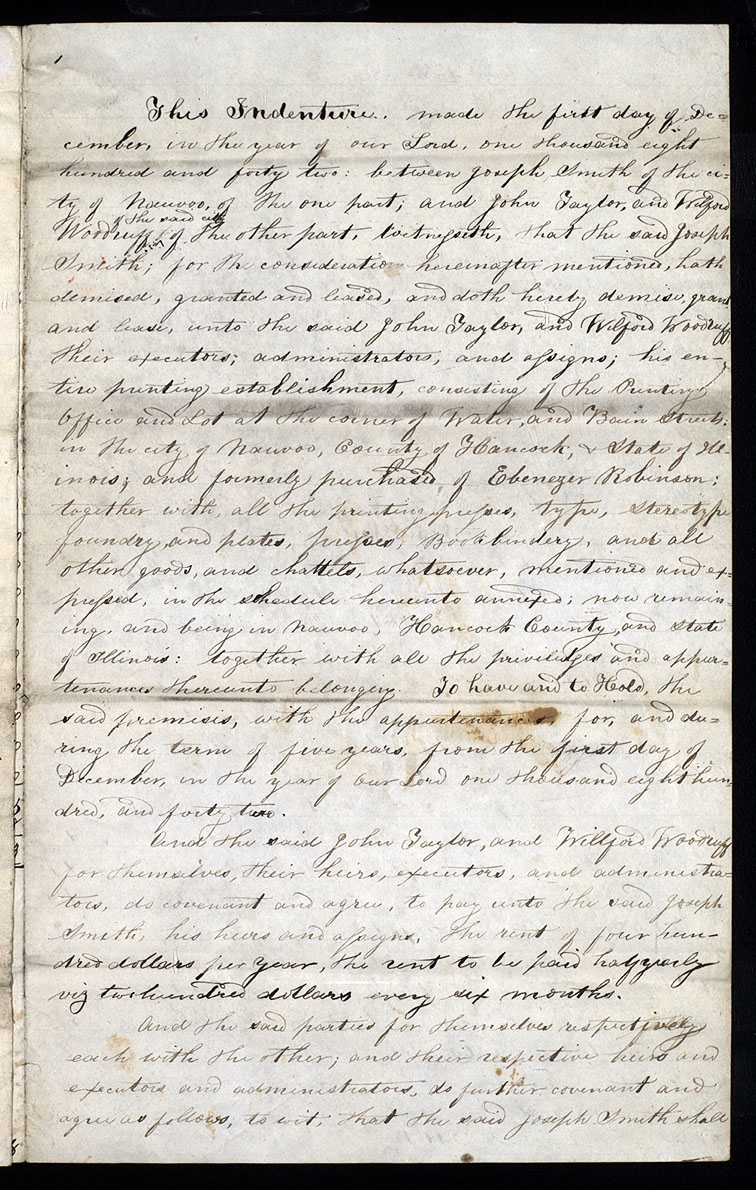 This Indenture. made the first day of De=
cember, in the year of our Lord, one thousand eight
hundred and forty two: between Joseph Smith of the ci-
ty of Nauvoo, of the one part; and John Taylor, and Wilford
of the said city
Woodruff of the other part, witnesseth, that the said Joseph
Smith; for the consideration hereinafter mentioned, hath
demised, granted and leased, and doth hereby demise, grant
and lease, unto the said John Taylor, and Wilford Woodruff
their executors; administrators, and assigns; his en-
tire printing establishment, consisting of the Printing
Office and Lot at the corner of Water, and Bain Streets:
in the city of Nauvoo, County of Hancock, & State of Ill-
inois; and formerly purchased of Ebenezer Robinson;
together with, all the printing presses, type, stereotype
foundry, and plates, presses, Bookbindery, and all
other goods, and chattels, whatsoever, mentioned and ex-
pressed, in the schedule hereunto annexed; now remain-
ing, and being in Nauvoo, Hancock County, and State
of Illinois: together with all the priviledges and appur-
tenances thereunto belonging. To have and to Hold, the
said premisis, with the appurtenances, for, and du-
ring the term of five years, from the first day of
December, in the year of our Lord one thousand eight hun-
dred, and forty two.
And the said John Taylor, and Willford Woodruff
for themselves, their heirs, executors, and administra-
tors, do covenant and agree, to pay unto the said Joseph
Smith, his heirs and assigns, the rent of four hun-
dred dollars per year, the rent to be paid half yerly
viz two hundred dollars every six months.
And the said parties for themselves respectively
each with the other; and their respective heirs and
executors and administrators, do further covenant and
agree as follows, to wit, that the said Joseph Smith shall